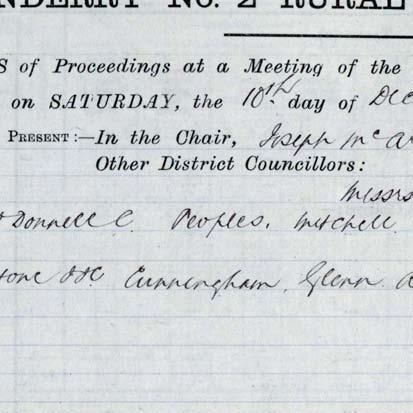 NDERRY No. 2 RURAL
S of Proceedings at a Meeting of the
on SATURDAY, the 10th day of Dec
PRESENT:—In the Chair, Joseph Mc
Other District Councillors:
Messrs
Donnell C. Peoples, Mitchell
Cunningham, Glenn